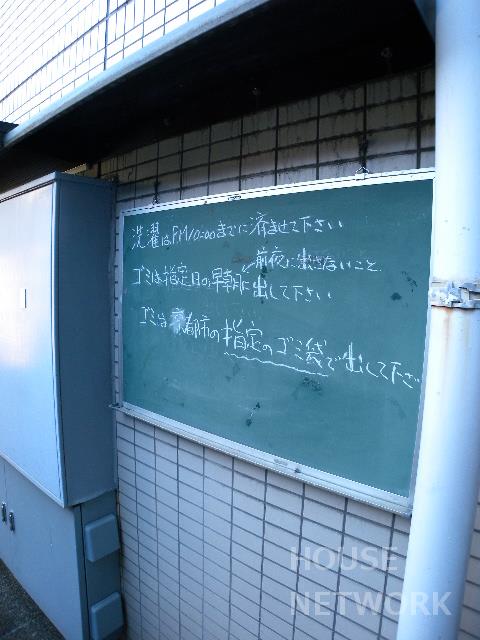 洗濯はPM10:00までに済ませて下さい
←前夜に出さないこと
ゴミは指定日の早朝に出して下さい
ゴミは京都市の指定のゴミ袋で出して下さ
HOUSE
NETWORK